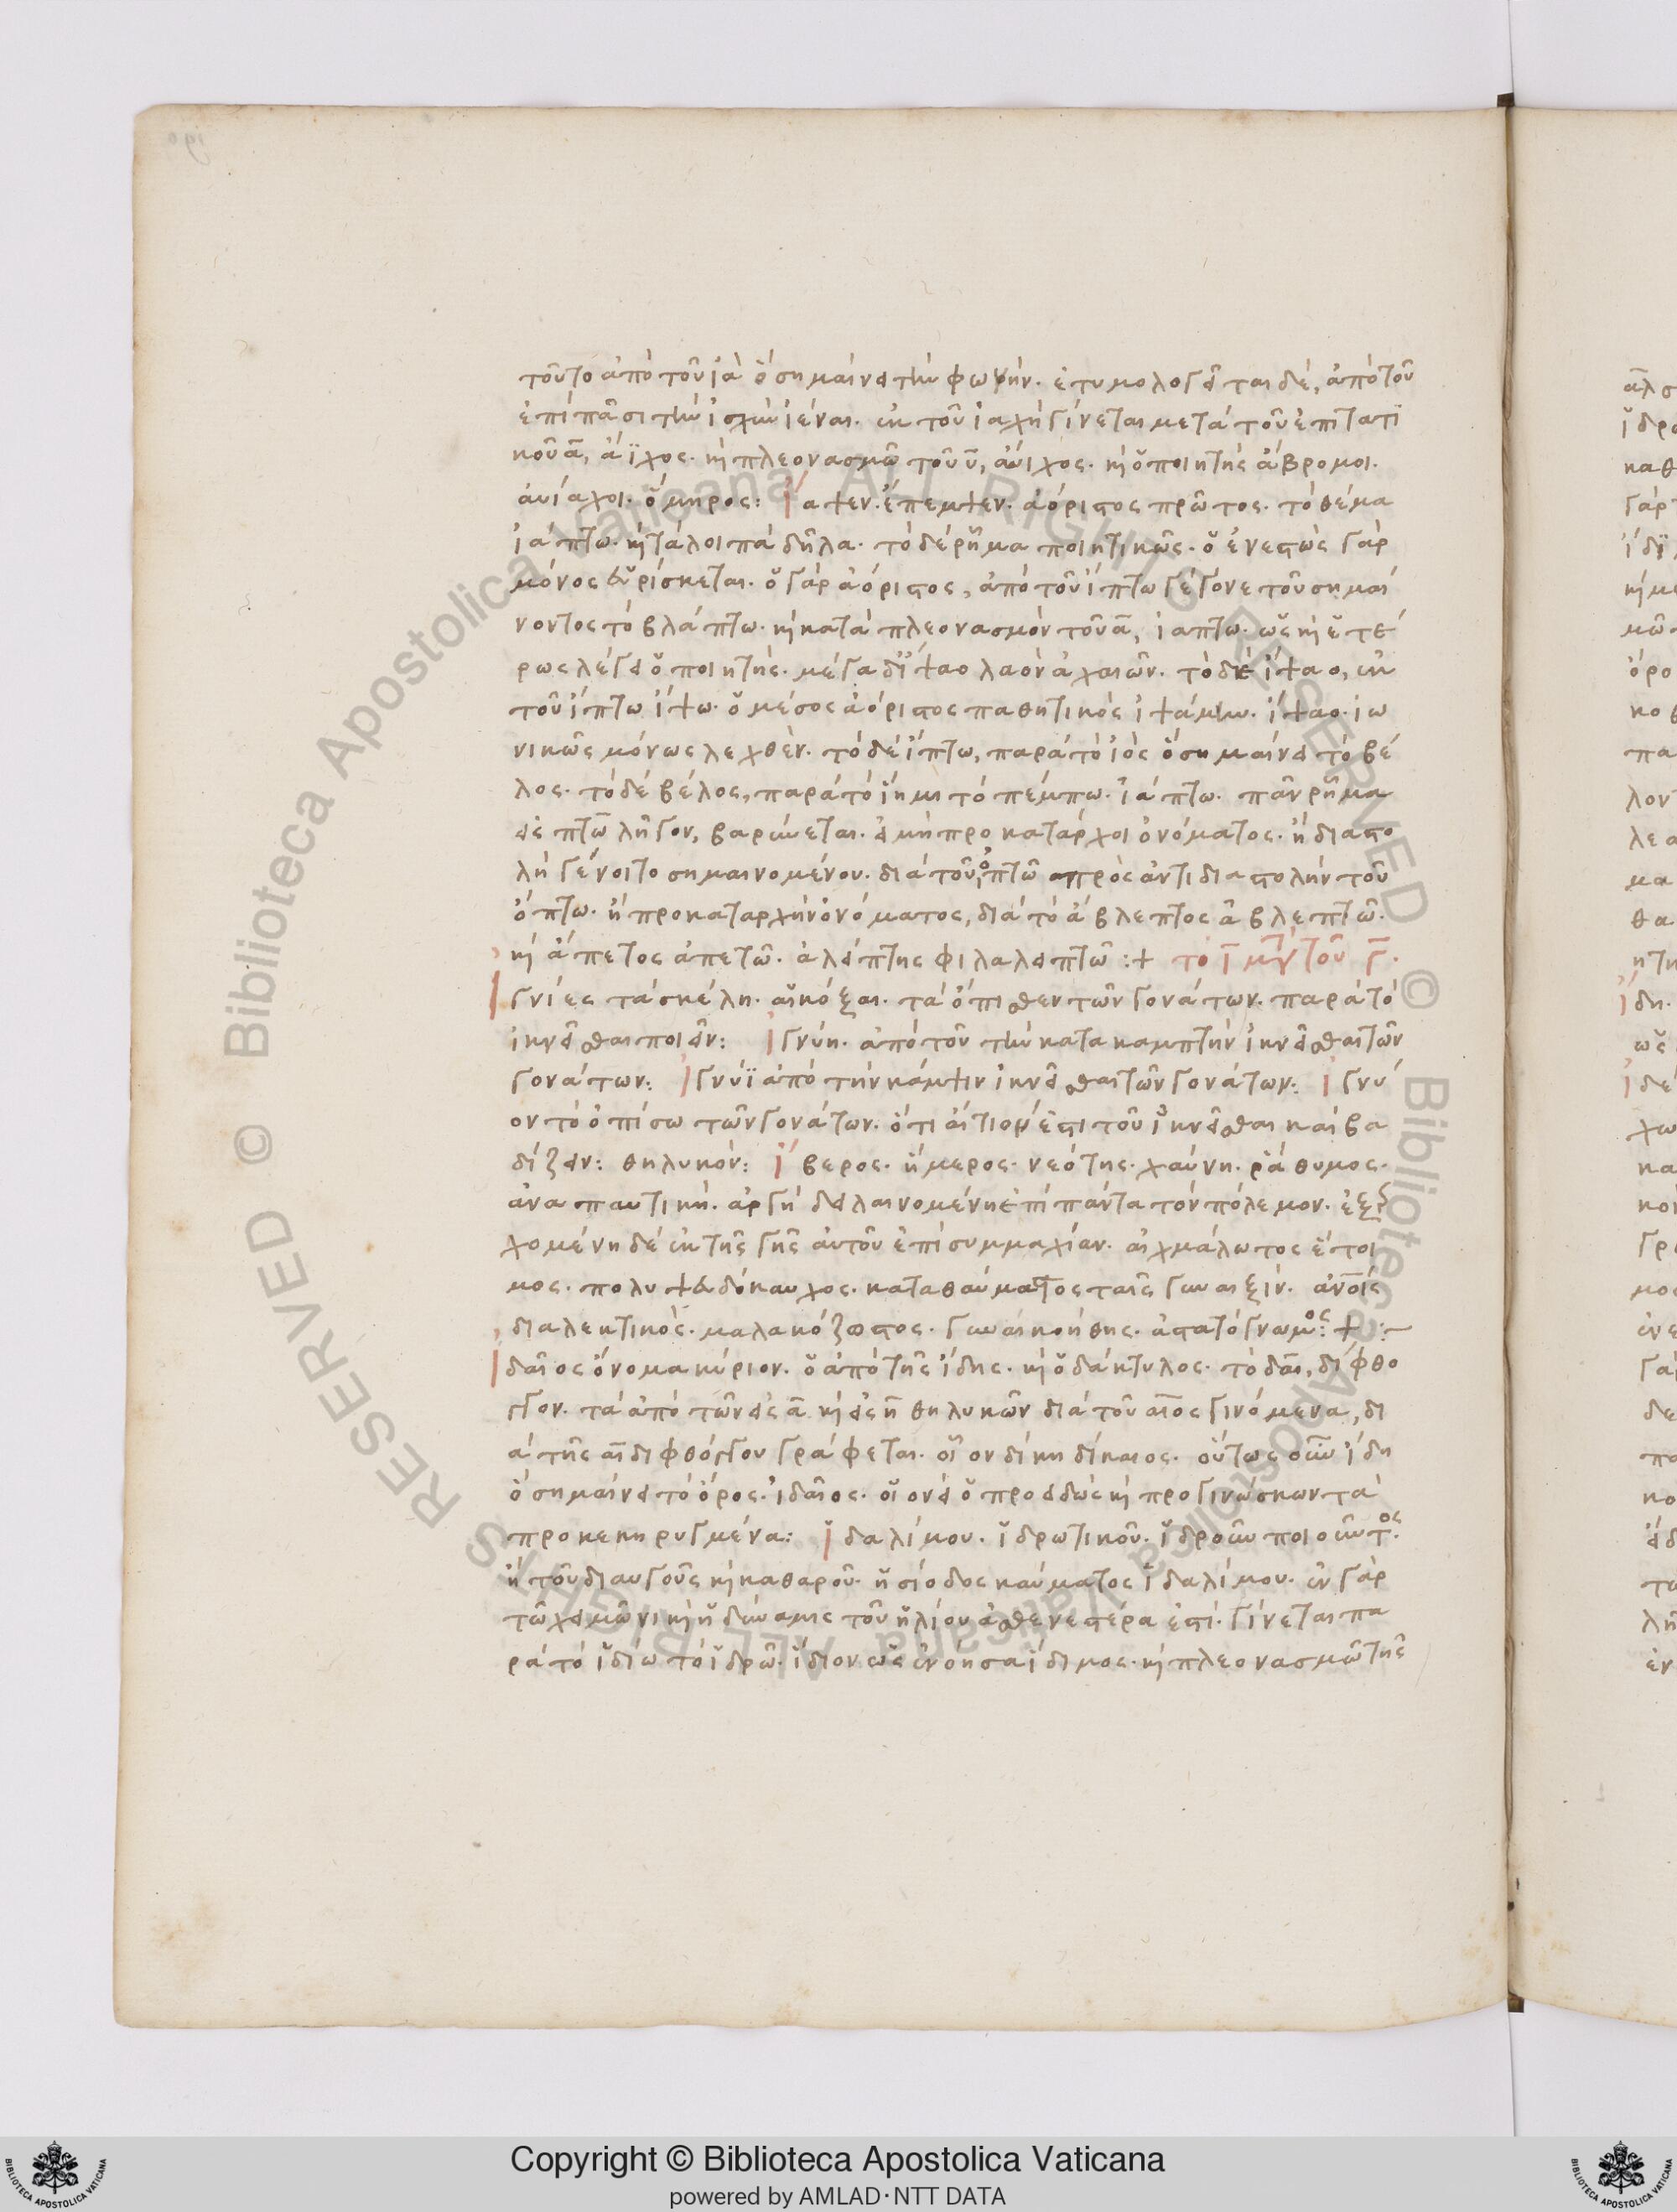 τοῦτο ἀπὸ τοῦ ἰὰ ὃ σημαίνει τὴν φωνήν. ἐτυμολογεῖται δὲ, ἀπὸ τοῦ
ἐπὶ πᾶσι τὴν ἰσχὺν ἰέναι. ἐκ τοῦ ἰαχὴ γίνεται μετὰ τοῦ ἐπιτατι
κοῦ α, ἀΐχος. κὴ πλεονασμῶ τοῦ υ, ἀύιχος. κὴ ὁ ποιητὴς ἄβρομοι.
ἀυίαχοι. ὅμηρος: ἴαψεν. ἔπεμψεν. ἀόριστος πρῶτος. τὸ θέμα
ἰάπτω. κὴ τὰ λοιπὰ δῆλα. τὸ δὲ ῥῆμα ποιητικῶς. ὁ ἐνεστὼς γὰρ
μόνος εὑρίσκεται. ὁ γὰρ ἀόριστος, ἀπὸ τοῦ ἵπτω γέγονε τοῦ σημαί
νοντος τὸ βλάπτω. κὴ κατὰ πλεονασμὸν τοῦ α, ἰαπτω. ὡς κὴ ἑτέ
ρως λέγει ὁ ποιητής. μέγα δ' ἴψαο λαὸν ἀχαιῶν. τὸ δὲ ἴψαο, ἐκ
τοῦ ἵπτω ἴψω. ὁ μέσος ἀόριστος παθητικὸς ἰψάμην. ἴψαο. ἰω
νικῶς μόνως λεχθέν. τὸ δὲ ἵπτω, παρὰ τὸ ἰὸς ὃ σημαίνει τὸ βέ
λος. τὸ δὲ βέλος, παρὰ τὸ ἵημι τὸ πέμπω. ἰάπτω. πᾶν ῥῆμα
εἰς πτω λῆγον, βαρύνεται. εἰ μὴ προκατάρχοι ὀνόματος. ἢ διαστο
λὴ γένοιτο σημαινομένου. διὰ τοῦ ὀπτῶ πρὸς ἀντιδιαστολὴν τοῦ
ὄπτω. ἢ προκαταρχὴν ὀνόματος, διὰ τὸ ἄβλεπτος ἀβλεπτῶ.
κὴ ἄπετος ἀπετῶ. ἀλείπτης φιλαλειπτῶ :+ τὸ ι μετὰ τοῦ γ.
Ἰγνίες τὰ σκέλη. αἱ κόξαι. τὰ ὄπισθεν τῶν γονάτων. παρὰ τὸ
ἱκνεῖσθαι ποιεῖν: Ἰγνύη. ἀπὸ τοῦ τὴν κατακαμπτὴν ἱκνεῖσθαι τῶν
γονάτων: Ἰγνύϊ ἀπὸ τὴν κάμψιν ἱκνεῖσθαι τῶν γονάτων: Ἰγνύ
ον τὸ ὀπίσω τῶν γονάτων. ὅτι αἴτιόν ἐστι τοῦ ἱκνεῖσθαι καὶ βα
δίζειν: θηλυκόν: Ἴβερος. ἥμερος. νεότης. χαύνη. ῥάθυμος.
ἀναπαυτικὴ. ἀργὴ δειλαινομένη ἐπὶ πάντα τὸν πόλεμον. ἐξερ
χομένη δὲ ἐκ τῆς γῆς αὐτοῦ ἐπὶ συμμαχίαν. αἰχμάλωτος ἕτοι
μος. πολυψευδόκαυχος. καταθαύμαστος ταῖς γυναιξίν.
διαλεκτικός. μαλακόζωστος. γυναικοήθης. ἀστατόγνωμος: + :~
Ἰδαῖος ὄνομα κύριον. ὁ ἀπὸ τῆς ἴδης. κὴ ὁ δάκτυλος. τὸ δαι, δίφθο
γγον. τὰ ἀπὸ τῶν εἰς α κὴ εἰς η θηλυκῶν διὰ τοῦ αιος γινόμενα, δι
ὰ τῆς αι διφθόγγου γράφεται. οἷον δίκη δίκαιος. οὕτως οὖν ἴδη
ὃ σημαίνει τὸ ὄρος. ἰδαῖος. οἱονεὶ ὁ προειδὼς κὴ προγινώσκων τὰ
προκεκηρυγμένα: Ἰδαλίμου. ἱδρωτικοῦ. ἱδροῦν ποιοῦντος.
ἢ τοῦ διαυγοῦς κὴ καθαροῦ. ἡσίοδος καύματος ἰδαλίμου. ἐν γὰρ
τῶ χειμῶνι κὴ ἡ δύναμις τοῦ ἡλίου ἀσθενεστέρα ἐστί. γίνεται πα
ρὰ τὸ ἰδίω τὸ ἱδρῶ. ἴδιον ὡς ἐνόησα ἴδιμος. κὴ πλεονασμῶ τῆς